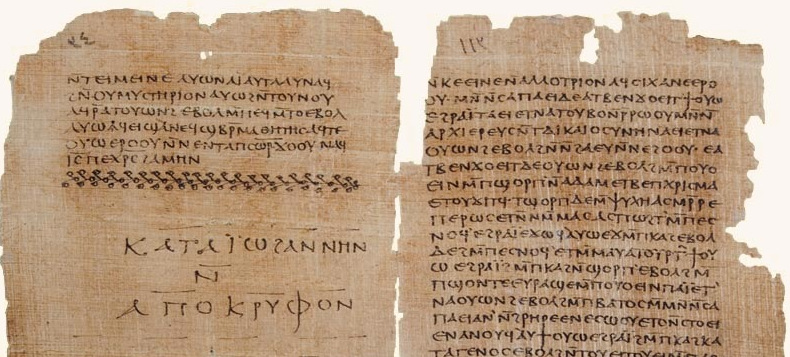 ⲛⲧⲉⲓⲙⲉⲓⲛⲉ ⲁⲩⲱ ⲛⲁⲓ ⲁⲩⲧⲁⲁⲩ ⲛⲁϥ
ϩⲛ̄ⲟⲩⲙⲩⲥⲧⲏⲣⲓⲟⲛ ⲁⲩⲱ ϩⲛ̄ⲧⲟⲩⲛⲟⲩ
ⲁϥⲣ̄ⲁⲧⲟⲩⲱⲛϩ ⲉⲃⲟⲗ ⲙ̄ⲡⲉϥⲙ̄ⲧⲟ ⲉⲃⲟⲗ
ⲁⲩⲱ ⲁϥⲉⲓ ϣⲁ ⲛⲉϥϣⲃⲣ̄ⲙⲁⲑⲏⲧⲏⲥ ⲁϥⲧⲉ
ⲟⲩⲱ ⲉⲣⲟⲟⲩ ⲛ̄ⲛⲉⲛⲧⲁⲡⲥⲱ̄ⲣ̄ ϫⲟⲟⲩ ⲛⲁϥ
ⲓ̄ⲥ̄ ⲡⲉⲭ̄ⲣ̄ⲥ̄ ϩⲁⲙⲏⲛ
ⲕⲁⲧⲁ ⲓ̈ⲱϩⲁⲛⲛⲏⲛ
ⲛ̄
ⲁⲡⲟⲕⲣⲩⲫⲟⲛ
ⲛⲕⲉⲉⲓ ⲛⲉⲛⲁⲗⲗⲟⲧⲣⲓⲟⲛ ⲁϥⲥⲓⲭⲁⲛⲉ ⲉⲣⲟ
ⲟⲩ· ⲙⲛ̄ⲛ̄ⲥⲁ ⲡⲁⲉⲓ ⲇⲉ ⲁⲧⲃⲉⲛϫⲟⲉⲓⲧ ϯⲟⲩⲱ
ⲉϩⲣⲁⲓ̈ ⲧⲁⲉⲓ ⲉⲧⲛⲁⲧⲟⲩⲃⲟ ⲛ̄ⲣ̄ⲣⲱⲟⲩ ⲙⲛ̄ⲛ̄
ⲁⲣⲭⲓⲉⲣⲉⲩⲥ ⲛ̄ⲧⲇⲓⲕⲁⲓⲟⲥⲩⲛⲏ ⲛⲁⲉⲓ ⲉⲧⲛⲁ
ⲟⲩⲱⲛϩ ⲉⲃⲟⲗ ϩⲛ̄ⲛ̄ϩⲁⲉⲩ ⲛ̄ϩⲟⲟⲩ· ⲉⲁ
ⲧⲃⲉⲛϫⲟⲉⲓⲧ ⲇⲉ ⲟⲩⲱⲛϩ ⲉⲃⲟⲗ ϩⲙ̄ⲡⲟⲩⲟ
ⲉⲓⲛ ⲙ̄ⲡϣⲟⲣⲡ ⲛ̄ⲁⲇⲁⲙ ⲉⲧⲃⲉ ⲡⲭⲣⲓⲥⲙⲁ
ⲉⲧⲟⲩϫⲓⲧϥ· ⲧϣⲟⲣⲡ ⲇⲉ ⲙ̄ⲯⲩⲭⲏ ⲁⲥⲙⲣ̄ⲣⲉ
ⲡⲉⲣⲱⲥ ⲉⲧⲛⲙ̄ⲙⲁⲥ ⲁⲥⲡⲱϩⲧ ⲙ̄ⲡⲉⲥ
ⲛⲟϥ ⲉϩⲣⲁⲓ̈ ⲉϫⲱϥ ⲁⲩⲱ ⲉϫⲙ̄ⲡⲕⲁϩ ⲉⲃⲟⲗ
ⲇⲉ ϩⲙ̄ⲡⲉⲥⲛⲟϥ ⲉⲧⲙ̄ⲙⲁⲩ ⲁⲡⲟⲩⲣⲧ ϯⲟⲩ
ⲱ ⲉϩⲣⲁⲓ̈ ϩⲙ̄ⲡⲕⲁϩ ⲛ̄ϣⲟⲣⲡ ⲉⲃⲟⲗ ϩⲙ̄
ⲡϣⲟⲛⲧⲉ ⲉⲩⲣⲁϣⲉ ⲙ̄ⲡⲟⲩⲟⲉⲓⲛ ⲡⲁⲓ̈ ⲉⲧ
ⲛⲁⲟⲩⲱⲛϩ ⲉⲃⲟⲗ ϩⲙ̄ⲡⲃⲁⲧⲟⲥ ⲙⲛ̄ⲛ̄ⲥⲁ
ⲡⲁⲉⲓ ⲁⲛ̄ϩⲣⲏⲣⲉ ⲉⲛⲉⲥⲱⲟⲩ ⲉⲧⲟⲛⲥⲧⲟⲉⲓ
ⲉⲛⲁⲛⲟⲩϥ ⲁⲩϯⲟⲩⲱ ⲉϩⲣⲁⲓ̈ ϩⲙ̄ⲡⲕⲁϩ ⲕⲁ
ⲧⲁ ⲅⲉⲛⲟⲥ ⲉⲃⲟⲗ